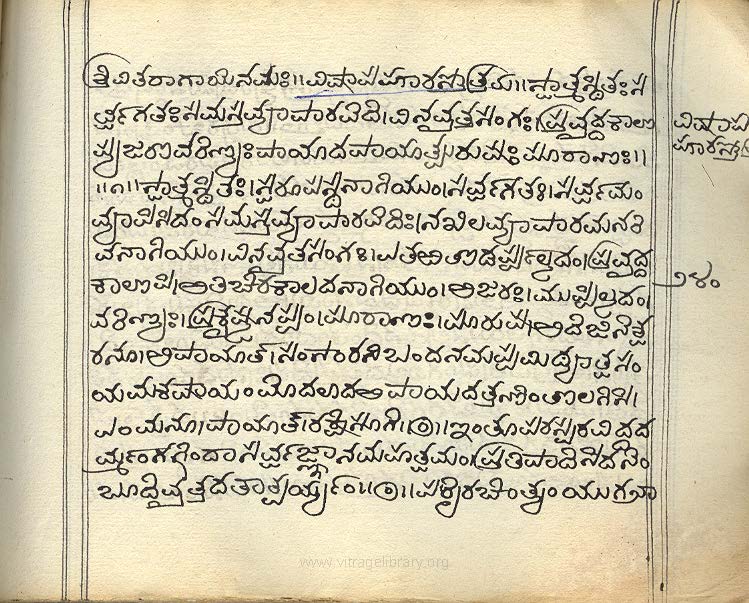 ಶ್ರೀವಿತರಾಗಾಯನಮಃ॥ವಿಷಾಪಹಾರಸ್ತೋತ್ರಮ॥ಸ್ವಾತ್ಮಸ್ಥಿತಃಸ
ರ್ವಗತಃಸಮಸ್ತವ್ಯಾಪಾರವೇದಿ।ವಿನಿವೃತ್ತಸಂಗಃ।ಪ್ರವೃದ್ಧಕಾಲೋ
ಪ್ಯಜರೋವರೇಣ್ಯಃಪಾಯಾದಪಾಯಾತ್ಪುರುಷಃಪೂರಾಣಃ॥
॥೧॥ಸ್ವಾತ್ಮಸ್ಥಿತಃ।ಸ್ವರೂಪಸ್ಥನಾಗಿಯುಂ।ಸರ್ವಗತಃ।ಸರ್ವಮಂ
ವ್ಯಾಪಿಸಿದಂಸಮಸ್ತವ್ಯಾಪಾರವೇದಿಃ।ನಿಖಿಲವ್ಯಾಪಾರಮನರಿ
ವನಾಗಿಯುಂ।ವಿನಿವೃತಸಂಗಃ।ಪ್ರವೃದ್ಧ
ಕಾಲೋಪಿ।ಅತಿಚಿರಕಾಲದನಾಗಿಯುಂ।ಅಜರಃ।ಮುಪ್ಪಿಲ್ಲದಂ।
ವರೇಣ್ಯಃ।ಪ್ರಕೃಷ್ಟನಪ್ಪಂ।ಪೂರಾಣಃ।ಪೂರುಷ।ಆದಿಜಿನೇಶ್ವ
ರನೂ।ಅಪಾಯಾತ್।ಸಂಸಾರನಿಬಂದನಮಪ್ಪಮಿಥ್ಯಾತ್ವಸಂ
ಯಮಕಷಾಯಂಮೊದಲಾದಅಪಾಯದತ್ತಣಿಂತೊಲಗಿಸಿ।
ಎಂಮನೂ।ಪಾಯಾತ್।ರಕ್ಷಿಸೂಗೆ।೦।ಇಂತೂಪರಸ್ಪರವಿರುದ
ರ್ಮ್ಮಂಗಳಿಂದಾಸರ್ವಜ್ಞಾನಮಹತ್ವಮಂ।ಪ್ರತಿಪಾದಿಸಿದನೆಂ
ಬೂದೀವೃತ್ತದತಾತ್ಪರ್ಯ್ಯಂ॥೦॥ಪರೈರಚಿಂತ್ಯಂಯುಗಭಾ
ವಿಷಾಪ
ಹಾರಸ್ತೋತ್ರ
www.vitragelibrary.org